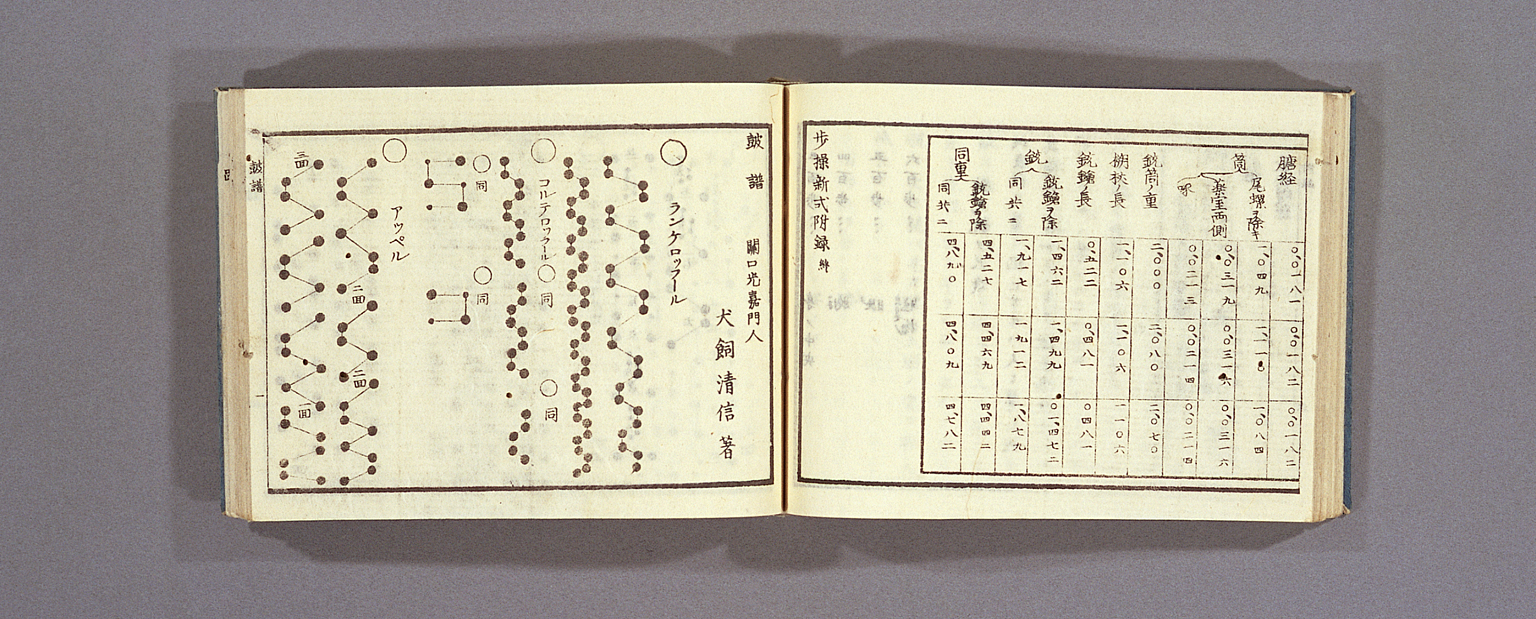 膅経 〇、〇一八一 〇、〇一八二 〇、〇一八二
尾螺ヲ除キ 一、〇四九 一、〇八四
薬室両側 〇、〇三一九 〇、〇三一六 〇、〇三一六
〇、〇二一三 〇、〇二一四 〇、〇二一四
銃筒ノ重 二、〇〇〇 二、〇八〇 二、〇七〇
杖ノ長 一、一〇六 一、一〇六 一、一〇六
銃鎗ノ長 〇、五二二 〇、四八一 〇四八一
銃
銃鎗ヲ除 一、四六二 一、四九九 〇一、四七二
同共ニ 一、九一七 一、九一二 一、八七九
同重
銃鎗ヲ除 四、五二七 四、四六九 四、四四二
同共ニ 四、八九〇 四、八〇九 四、七八二
歩操新式附録 終
皷譜
關口光嘉門人
犬飼清信著
ランケロッフール
コルテロッフール
同
同
同
同
アッペル
二面
二面
三面
一面
皷譜
一